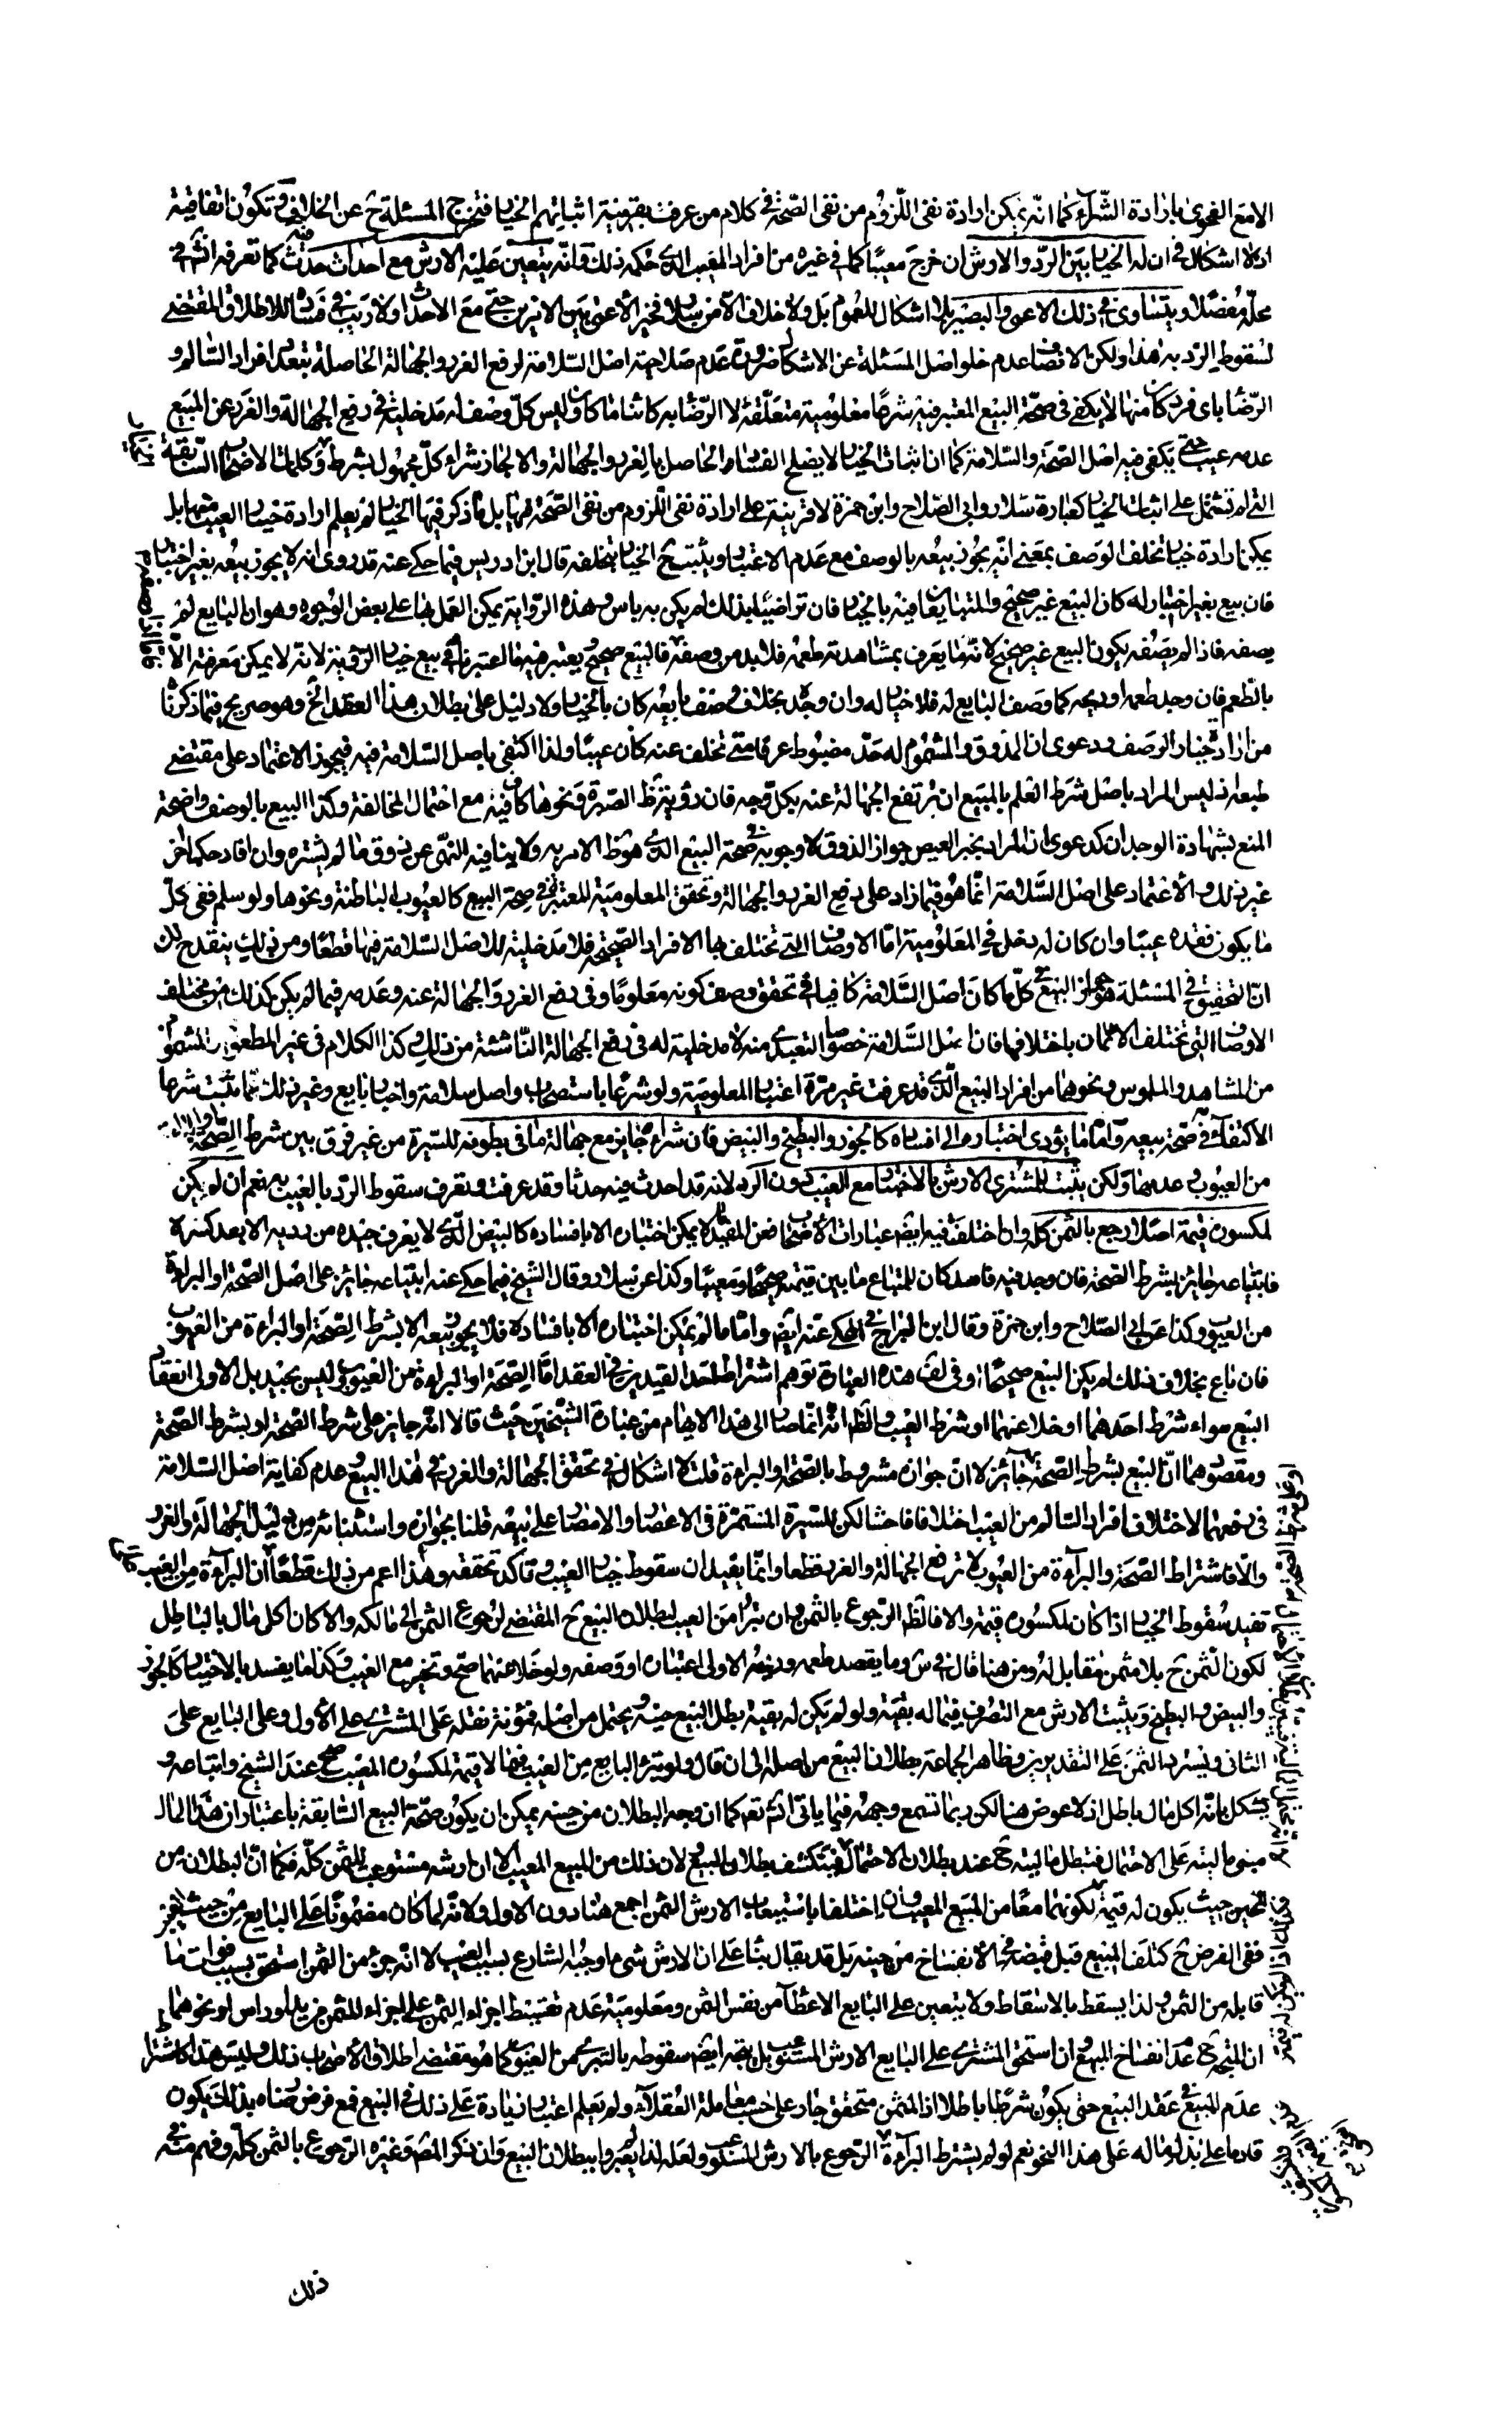 الا مع الفحوى بارادة الشراء كما انه يمكن ارادة نفى اللزوم من نفى الصحة فى كلام من عرفت بقرينة اثباتهم الخيار فتخرج المسئلة ح عن الخلاف وتكون اتفاقية
اذ لا اشكال فى ان له الخيار بين الرد والارش ان خرج معيبا كما فى غيره من افراد المعيب الذى حكمه ذلك وانه يتعين عليه الارش مع احداث حدث فيه كما تعرفه انش فى
محله مفصلا ويتساوى فى ذلك الاعمى والبصير بلا اشكال للعموم بل ولا خلاف الا من سلار فخير الاعمى بين الامرين حتى مع الاحداث ولا ريب فى فساده للاطلاق المقتضى
لسقوط الرد به هذا ولكن الانصاف عدم خلو اصل المسئلة عن الاشكال ضرورة عدم صلاحية اصل السلامة لرفع الغرر والجهالة الحاصلة بتعدد افراد السالم و
الرضا باى فرد كان منها لا يكفى فى صحة البيع المعتبر فيه شرعا معلومية متعلقة لا الرضا به كائنا ما كان وليس كل وصف له مدخلية فى رفع الجهالة والغرر عن المبيع
عدمه عيب حتى يكفى فيه اصل الصحة والسلامة كما ان اثبات الخيار لا يصلح الفساد الحاصل بالغرر والجهالة والا لجاز شراء كل مجهول بشرط وكلمات الاصحاب السابقة
التى لم تشتمل على اثبات الخيار كعبارة سلار وابى الصلاح وابن حمزة لا قرينة على ارادة نفى اللزوم من نفى الصحة فيها بل ما ذكر فيها الخيار لم يعلم ارادة خيار العيب منها بل
يمكن ارادة خيار تخلف الوصف بمعنى انه يجوز بيعه بالوصف مع عدم الاعتبار ويثبت ح الخيار بتخلفه قال ابن ادريس فيما حكى عنه قد روى انه لا يجوز بيعه بغير اختباره
فان بيع بغير اختبار له كان البيع غير صحيح والمتبايعان فيه بالخيار فان تراضيا بذلك لم يكن به باس وهذه الرواية يمكن العمل بها على بعض الوجوه وهو ان البايع لم
يصفه فاذا لم يصفه يكون البيع غير صحيح لانه ما يعرف بمشاهدته طعمه فلا بد من وصفه فالبيع صحيح ويعتبر فيه ما اعتبرناه فى بيع خيار الرؤية لانه لا يمكن معرفته الا
بالطعم فان وجد طعمه او ريحه كما وصف البايع له فلا خيار له وان وجد بخلاف وصف بايعه كان بالخيار ولا دليل على بطلان هذا العقد الخ وهو صريح فيما ذكرنا
من ارادة خيار الوصف ودعوى ان المذوق والمشموم له حد مضبوط عرفا متى تخلف عنه كان عيبا ولذا اكتفى باصل السلامة فيه فيجوز الاعتماد على مقتضى
طبعه اذ ليس المراد باصل شرط العلم بالمبيع ان ترتفع الجهالة عنه بكل وجه فان رؤية ظ الصبرة ونحوها كاف فيه مع احتمال المخالفة وكذا البيع بالوصف واضحة
المنع بشهادة الوجدان كدعوى ان المراد بخبر العيص جواز الذوق لا وجوبه فى صحة البيع الذى هو ظ الامر به ولا ينافيه النهى عن ذوق ما لم يشتره وان افاد حكما اخر
غير ذلك والاعتماد على اصل السلامة انما هو فيما زاد على رفع الغرر والجهالة وتحقق المعلومية المعتبر فى صحة البيع كالعيوب الباطنة ونحوها ولو سلم ففى كل
ما يكون فقده عيبا وان كان له دخل فى المعلومية اما الاوصاف التى تختلف بها الافراد الصحيحة فلا مدخلية للاصل السلامة فيها قطعا ومن ذلك ينقدح لك
ان التحقيق فى المسئلة هو جواز البيع فى كل ما كان اصل السلامة كافيا فى تحقق وصف كونه معلوما وفى رفع الغرر والجهالة عنه وعدمه فيما لم يكن كذلك من مختلف
الاوصاف التى تختلف الاثمان باختلافها فان اصل السلامة خصوصا التعبدى منه لا مدخلية له فى رفع الجهالة الناشئة من ذلك وكذا الكلام فى غير المطعوم والمشموم
من المشاهد والملموس ونحوهما من افراد البيع الذى قد عرفت غير مرة اعتبار المعلومية ولو شرعا باستصحاب واصل سلامة واخبار بايع وغير ذلك مما ثبت شرعا
الاكتفاء به فى صحة بيعه واما ما يؤدى اختباره الى افساده كالجوز والبطيخ والبيض فان شراءه جايز مع جهالة ما فى بطونه للسيرة من غير فرق بين شرط الصحة
من العيوب وعدمها ولكن يثبت للمشترى الارش بالاختبار مع العيب دون الرد لانه قد احدث فيه حدثا وقد عرفت وتعرف سقوط الرد بالعيب به نعم ان لم يكن
لمكسوره قيمة اصلا رجع بالثمن كله وان اختلفت فيه ايضا عبارات الاصحاب فعن المفيد ما لا يمكن اختباره الا بافساده كالبيض الذى لا يعرف جيده من رديه الا بعد كسره
فابتياعه جايز بشرط الصحة فان وجد فيه فاسد كان للمبتاع ما بين قيمته صحيحا ومعيبا وكذا عن سلار وقال الشيخ فيما حكى عنه ابتياعه جايز على اصل الصحة او البراءة
من العيوب وكذا عن ابى الصلاح وابن حمزة وقال ابن البراج فى المحكى عنه ايضا واما ما لم يمكن اختباره الا بافساده فلا يجوز بيعه الا بشرط الصحة او البراءة من العيوب
فان باع بخلاف ذلك لم يكن البيع صحيحا وفى لف هذه العبارة توهم اشتراط احد القيدين فى العقد اما الصحة او البراءة من العيوب وليس بجيد بل الاولى انعقاد
البيع سواء شرط احدهما او خلا عنهما او شرط العيب والظ انه انما صار الى هذا الايهام من عبارة الشيخين حيث قالا انه جايز على شرط الصحة او بشرط الصحة
ومقصودهما ان البيع بشرط الصحة جائز لا ان جوازه مشروط بالصحة او البراءة قلت لا اشكال فى تحقق الجهالة والغرر فى هذا البيع وعدم كفاية اصل السلامة
فى رفعهما لاختلاف افراد السالم من العيب اختلافا فاحشا لكن للسيرة المستمرة فى الاعصار والامصار على بيعه قلنا بجوازه واستثنائه من دليل الجهالة والغرر
والا فاشتراط الصحة والبراءة من العيوب لا ترفع الجهالة والغرر قطعا وانما يفيدان سقوط خيار العيب وتاكد تحققه وهذا اعم من ذلك قطعا ان البراءة من العيب
تفيد سقوط الخيار اذا كان لمكسوره قيمة والا فالظ الرجوع بالثمن وان تبرا من العيب لبطلان البيع ح المقتضى لرجوع الثمن الى مالكه والا كان اكل مال بالباطل
لكون الثمن ح بلا مثمن مقابل له ومن هنا قال فى س وما يقصد طعمه وريحه الاولى اعتباره او وصفه ولو خلا عنهما صح وتخير مع العيب وكذا ما يفسد بالاختبار كالجوز
والبيض والبطيخ ويثبت الارش مع التصرف فيما له بقية ولو لم يكن له بقية بطل البيع حينه ويحتمل من اصله فمؤنة نقله على المشترى على الاول وعلى البايع على
الثانى ويسترد الثمن على التقديرين وظاهر الجماعة بطلان البيع من اصله الى ان قال ولو تبرا البايع من العيب فيما لا قيمة لمكسوره المعيب صح عند الشيخ واتباعه و
يشكل بانه اكل مال باطل اذ لا عوض هنا لكن ربما تسمع وجهه فيما ياتى انش تع كما ان وجه البطلان من حينه يمكن ان يكون صحة البيع السابقة باعتبار ان هذا المال
مبنى ماليته على الاحتمال فتبطل ماليته ح عند بطلان الاحتمال لا فينكشف بطلان البيع ولان ذلك من المبيع المعيب الا ان ارشه مستوعب للثمن كله فكما ان البطلان من
الحين حيث يكون له قيمة لكونهما معا من المبيع المعيب وان اختلفا باستيعاب الارش الثمن اجمع هنا دون الاول ولانه لما كان مضمونا على البايع من حيث العيب
ففى الفرض ح كتلف المبيع قبل قبضه فى الانفساخ من حينه بل قد يقال بناء على ان الارش شىء اوجبه الشارع بسبب العيب لا انه جزء من الثمن استحق بسبب فوات ما
قابله من الثمن ولذا يسقط بالاسقاط ولا يتعين على البايع الاعطاء من نفس الثمن ومعلومية عدم تقسيط اجزاء الثمن على اجزاء المثمن من يد او راس او نحوهما
ان المتجه ح عدم انفساخ البيع وان استحق المشترى على البايع الارش المستوعب بل يتجه ايضا سقوطه بالتبرى من العيوب كما هو مقتضى اطلاق الاصحاب ذلك وليس هذا كاشتراط
عدم المبيع فى عقد البيع حتى يكون شرطا باطلا اذ المثمن متحقق جار على حسب معاملة العقلاء ولم يعلم اعتبار زيادة على ذلك فى البيع فمع فرض رضاه بذلك يكون
قادما على بذل ماله على هذا النحو نعم لو لم يشترط البراءة الرجوع بالارش المستوعب ولعله لذا لم يعبروا ببطلان البيع وان ذكر المصنف وغيره الرجوع بالثمن كله وفهم منه
ذلك